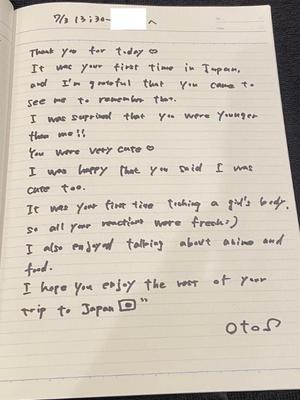 7/3 13:30- へ
Thank you for today ♡
It was your first time in Japan,
and I'm grateful that you came to
see me to remember that.
I was suprised that you were younger
than me!!
You were very cute ♡
I was happy that you said I was
cute too.
It was your first time toching a girl's body,
so all your reactions were fresh:)
I also enjoyed talking about anime and
food.
I hope you enjoy the rest of your
trip to Japan